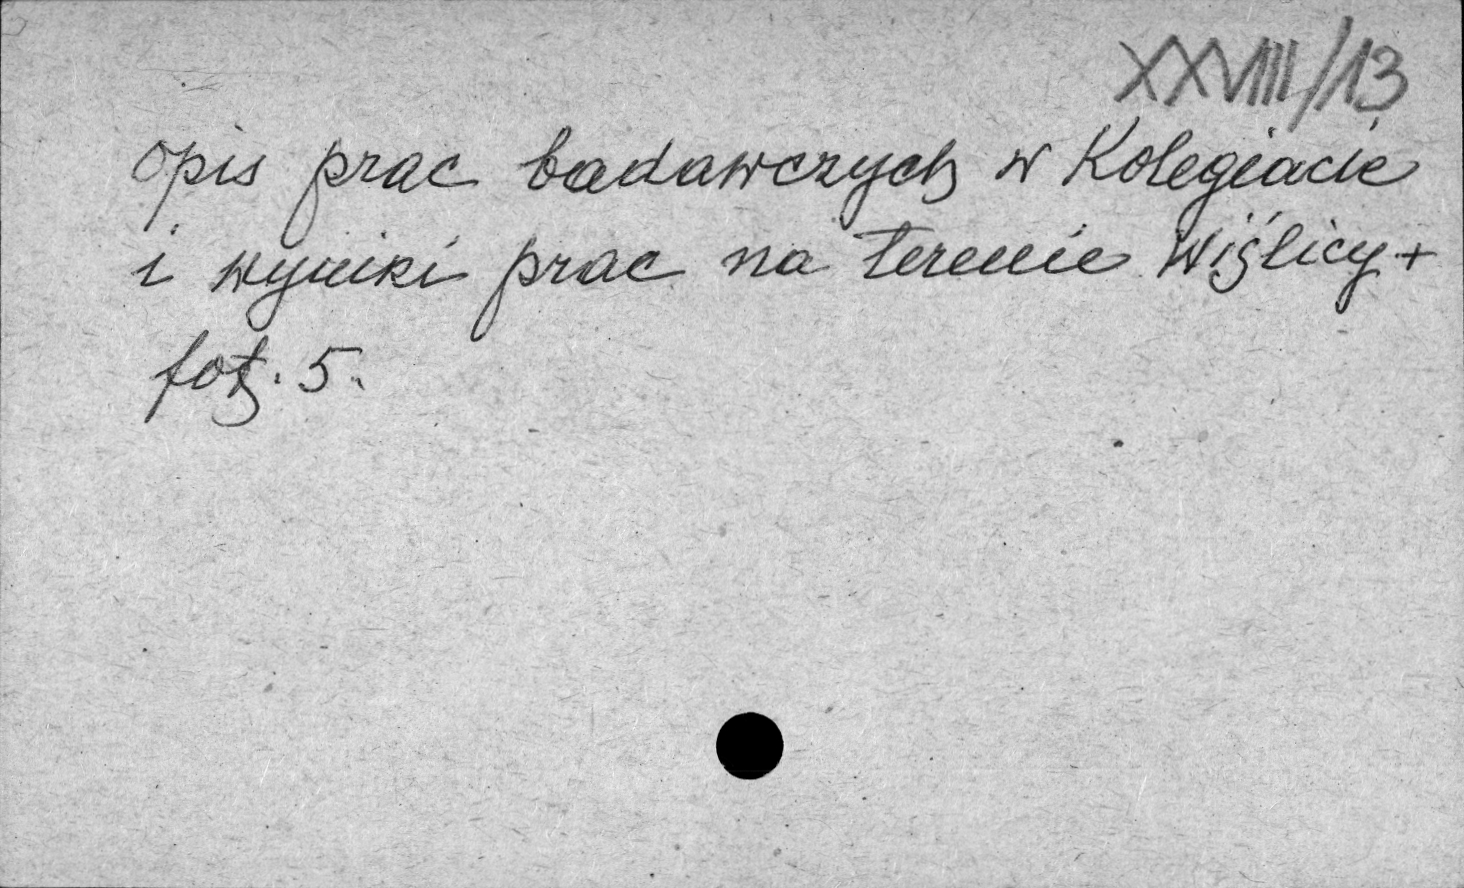 XXVIII/13
opis prac badawczych w Kolegiacie
i wyniki prac na terenie Wiślicy +
fot. 5.